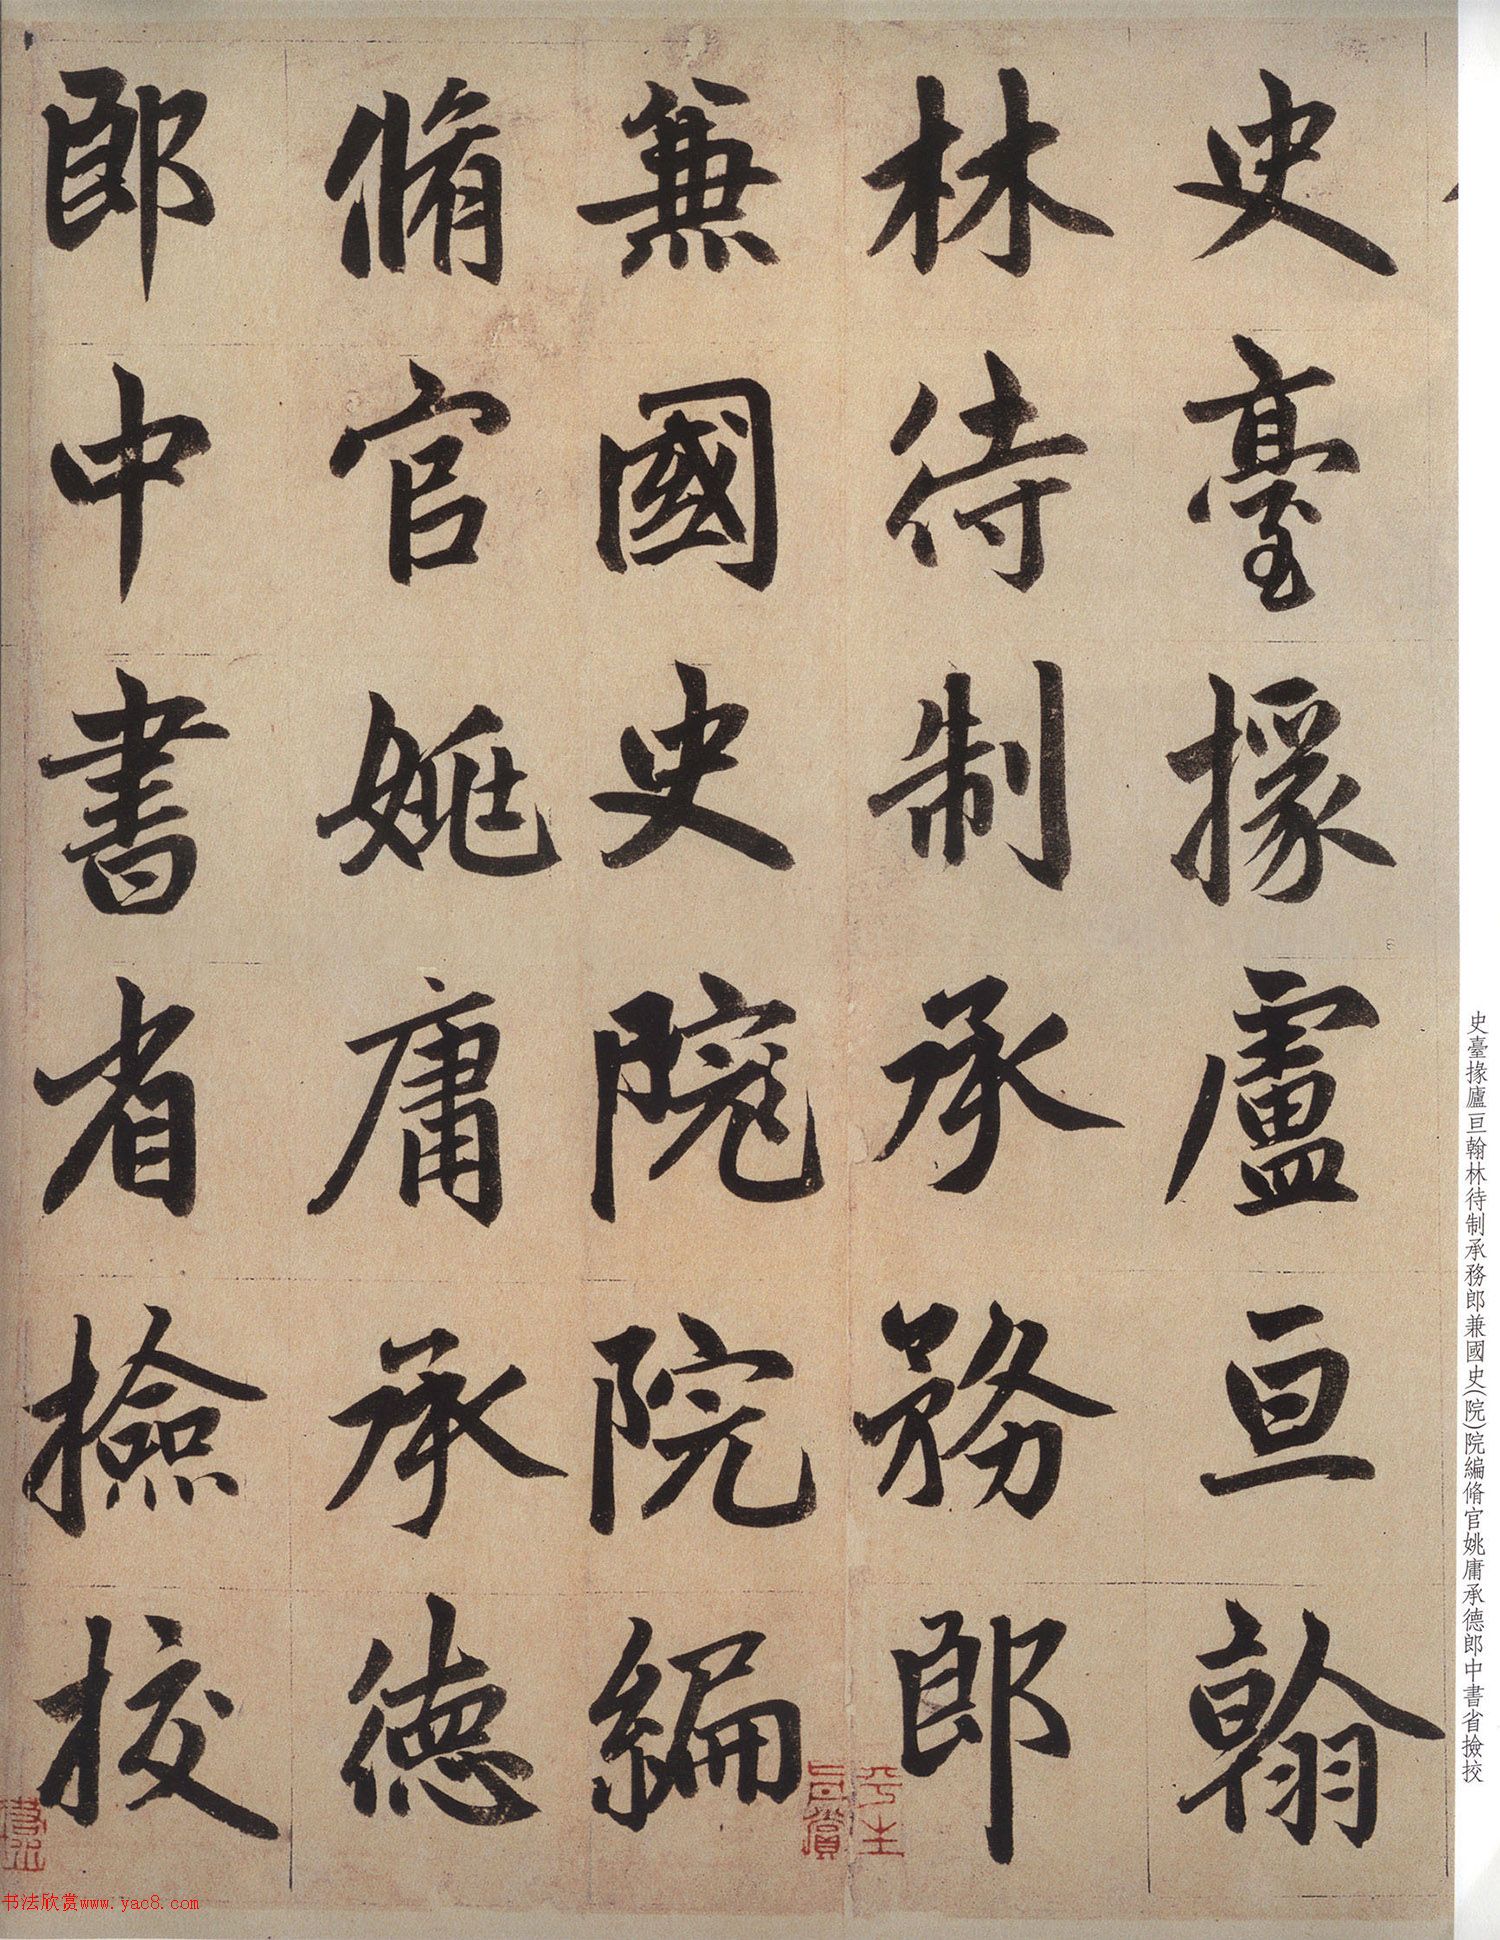 史臺掾廬亘翰
林待制承務郎
兼國史院院編
脩官姚庸承德
郎中書省撿挍
史臺掾廬亘翰林待制承務郎兼國史(院)院編脩官姚庸承德郎中書省撿挍
书法欣赏www.yac8.com